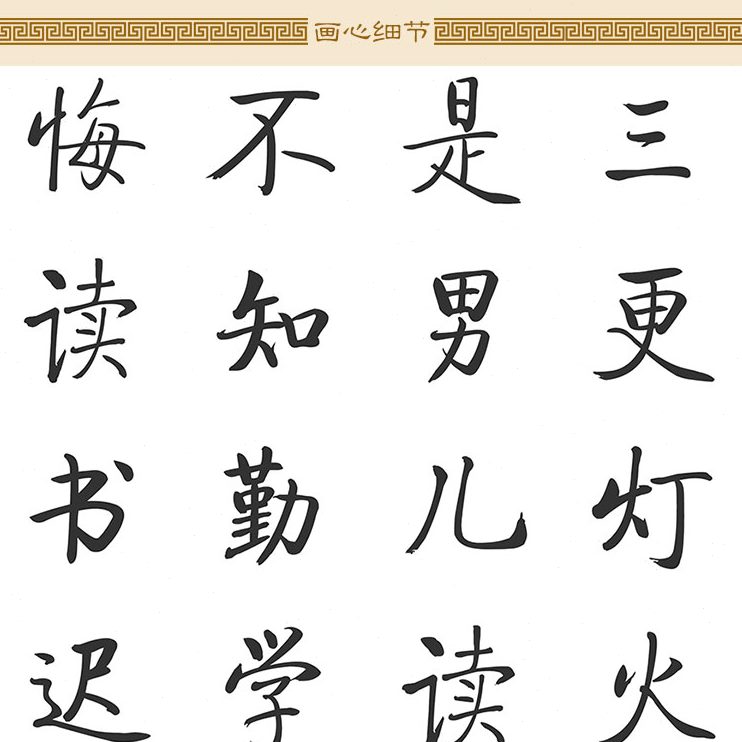 画心细节
三更灯火
是男儿读
不知勤学
悔读书迟